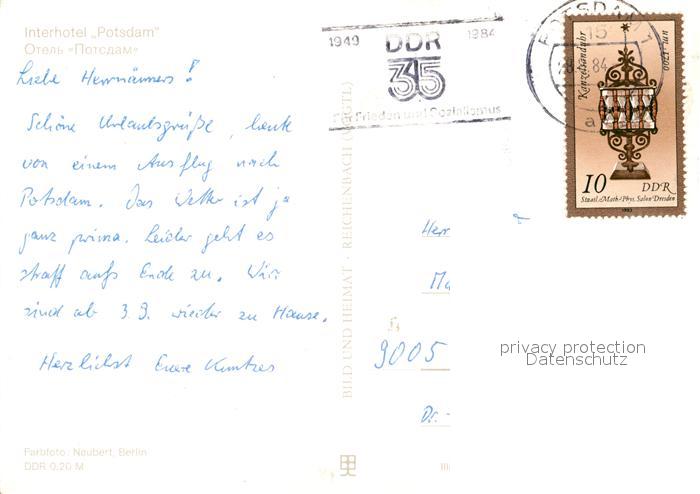 Interhotel „Potsdam"
Отель «Потсдам»
Liebe Herrmänners!
Schöne Urlaubsgrüße, heute
von einem Ausflug nach
Potsdam. Das Wetter ist ja
ganz prima. Leider geht es
straff aufs Ende zu. Wir
sind ab 3.9. wieder zu Hause.
Herzlichst Euere Kuntzes
Farbfoto: Neubert, Berlin
DDR 0,20 M
BILD UND HEIMAT · REICHENBACH (VOGTL)
1949 DDR 1984
35
Für Frieden und Sozialismus
POTSDAM
15
84
a
Kanzelsanduhr
um 1700
10 DDR
Staatl. Math.-Phys. Salon Dresden
1983
Herr
Ma
9005
Dr.-
privacy protection
Datenschutz
III